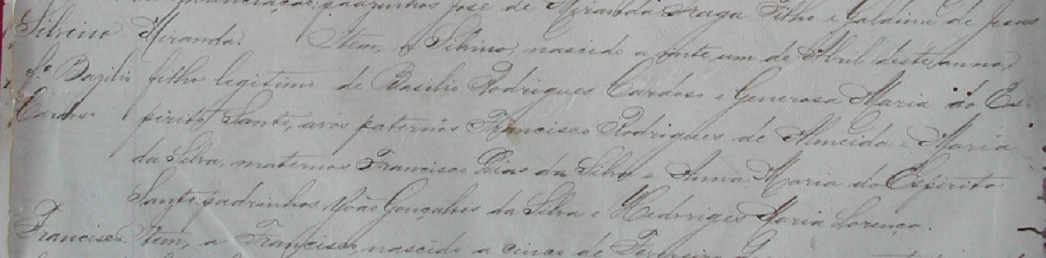 padrinhos José de Miranda Fraga Filho e Galdina de Jesus
Silvino Miranda. Item, o Silvino, nascido a vinte um de Abril deste anno,
fº Bazilio filho legitimo de Basilio Rodrigues Cardoso e Generosa Maria do Es-
Cardoso pirito Santo, avós paternos Francisco Rodrigues de Almeida e Maria
da Silva, maternos Francisco Dias da Silva e Anna Maria do Espirito
Santo padrinhos João Gonçalves da Silva e Hedwiges Maria Lorença.
Francisco Item, a Francisco, nascido a cinco de Fevereiro